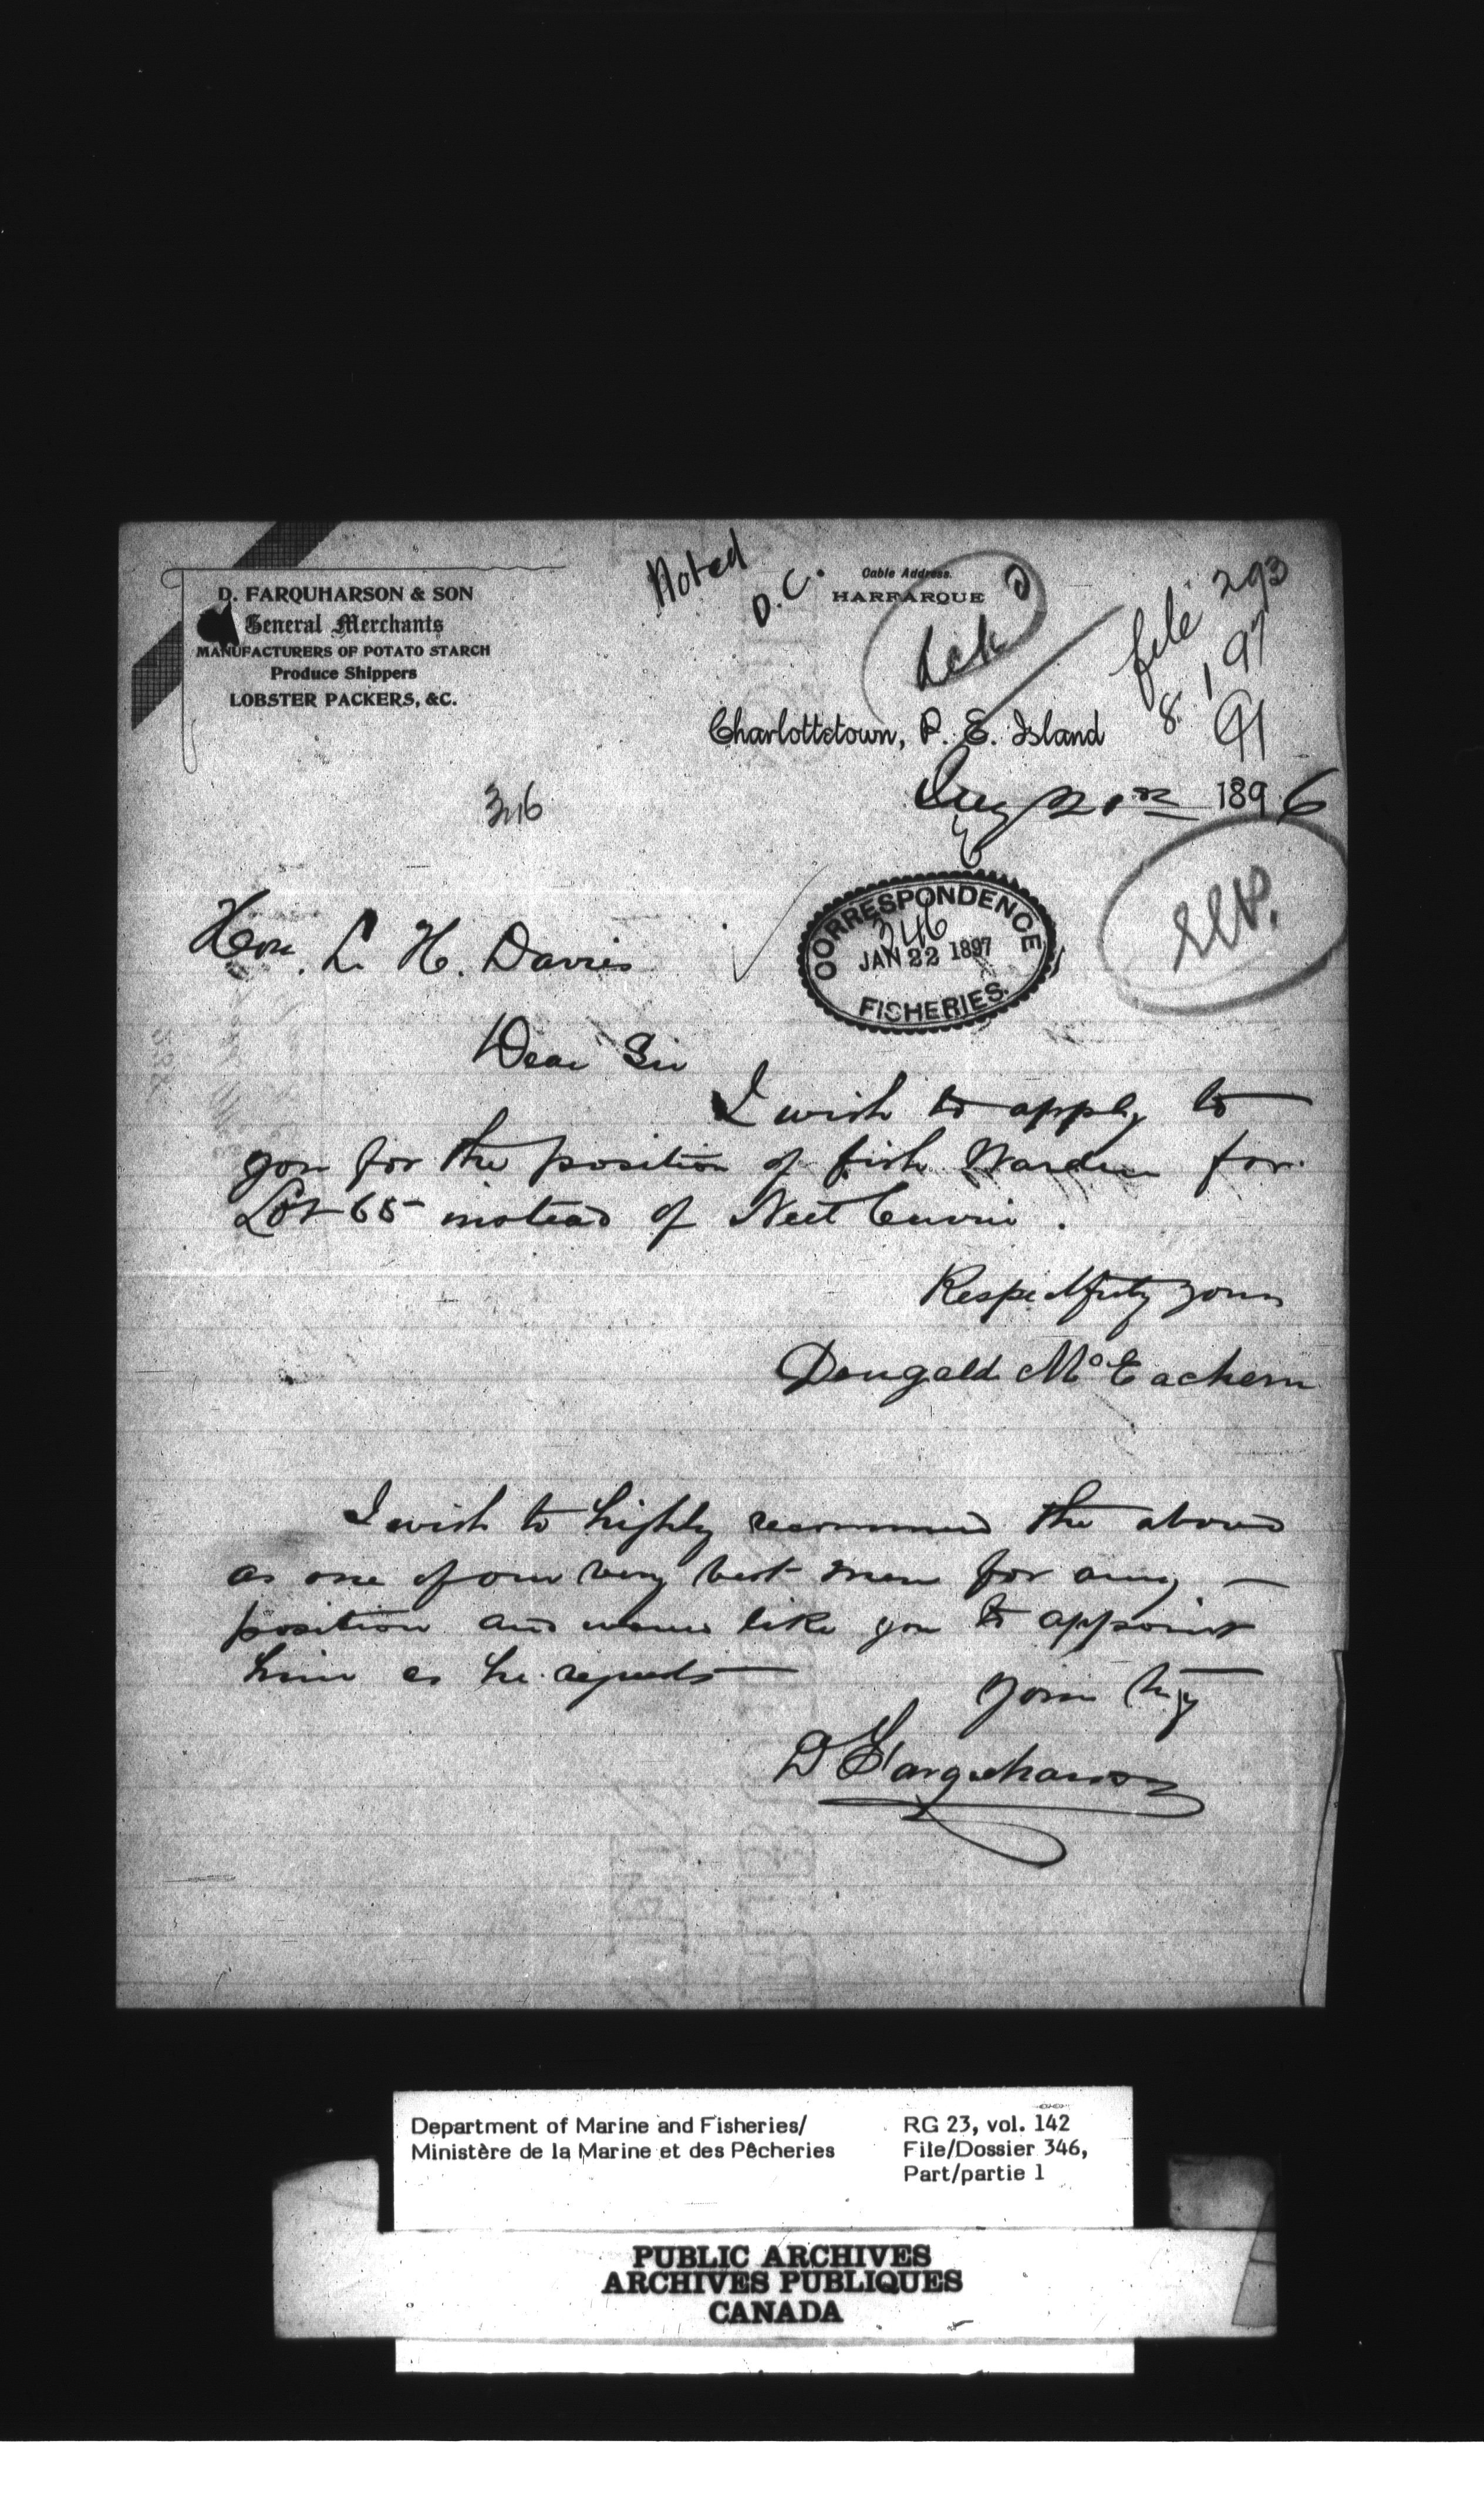 D. FARQUHARSON & SON
General Merchants
MANUFACTURERS OF POTATO STARCH
Produce Shippers
LOBSTER PACKERS, &C.
Noted
D.C.
Cable Address.
HARFARQUE
Ack d
file 293
8.1.97
91
Charlottetown, P. E. Island
21st 1896
346
CORRESPONDENCE
346
JAN 22 1897
FISHERIES.
Hon. L. H. Davies
Dear Sir
I wish to apply to
you for the position of fish Warden for
Lot 65 instead of Neil Currie.
Respectfuly yours
Dougald McEachern
I wish to highly recommend the above
as one of our very best men for any
position and would like you to appoint
him as he requests
yours try
D Farquharson
Department of Marine and Fisheries/
Ministère de la Marine et des Pêcheries
RG 23, vol. 142
File/Dossier 346,
Part/partie 1
PUBLIC ARCHIVES
ARCHIVES PUBLIQUES
CANADA